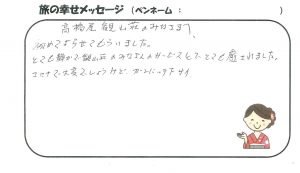 旅の幸せメッセージ （ペンネーム：　　　　　）
高橋屋 観山荘のみなさまへ
初めて よらせてもらいました。
とても静かで 観山荘のみなさんのサービスもとても癒されました。
コロナで大変でしょうけど、ガンバッテ下サイ